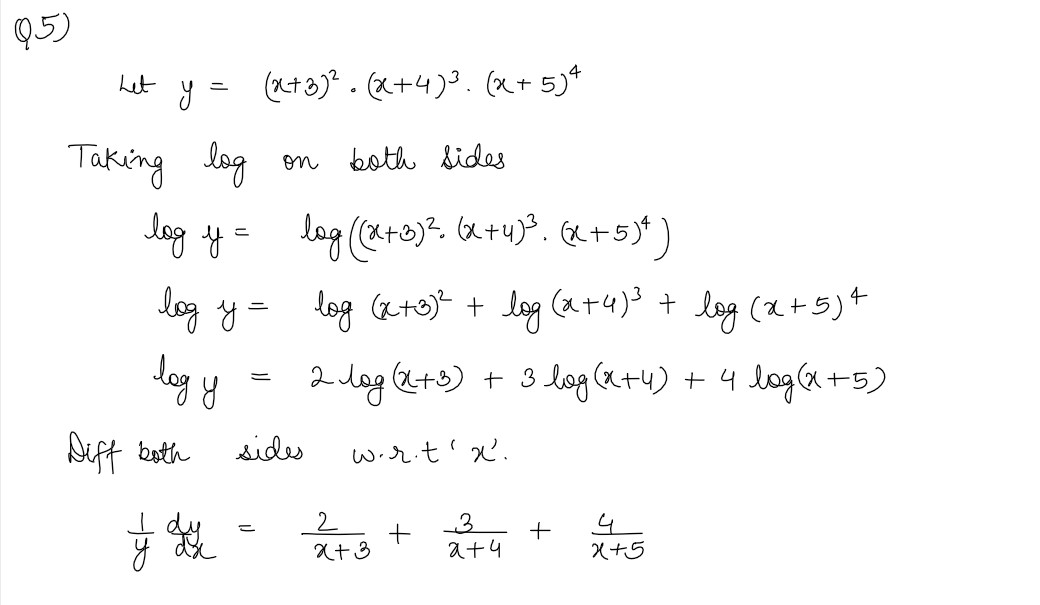 Q5)
Let y = (x+3)² . (x+4)³ . (x+5)⁴
Taking log on both sides
log y = log((x+3)². (x+4)³. (x+5)⁴)
log y = log (x+3)² + log (x+4)³ + log (x+5)⁴
log y = 2 log(x+3) + 3 log(x+4) + 4 log(x+5)
Diff both sides w.r.t 'x'.
1/y dy/dx = 2/(x+3) + 3/(x+4) + 4/(x+5)